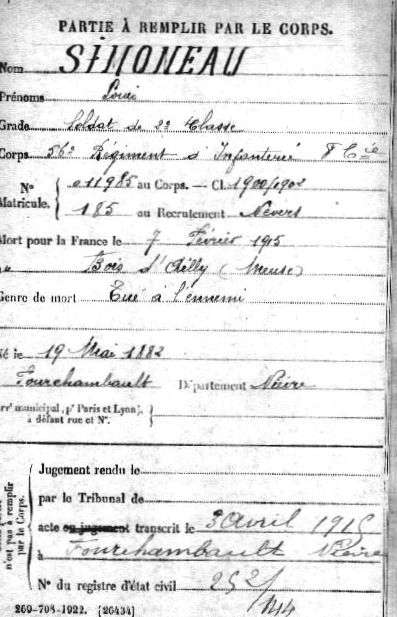 PARTIE À REMPLIR PAR LE CORPS.
Nom SIMONEAU
Prénoms Louis
Grade Soldat de 2e Classe
Corps 56e Régiment d'Infanterie Cie
N° 011985 au Corps. — Cl. 1900/1902
Matricule. 185 au Recrutement Nevers
Mort pour la France le 7 Février 1915
Bois d'Ailly (Meuse)
Genre de mort Tué à l'ennemi
é le 19 Mai 1882
Fourchambault Département Nièvre
arrt municipal, pr Paris et Lyon).
à défaut rue et N°.
n'ont pas à remplir
par le Corps.
Jugement rendu le
par le Tribunal de
acte ou jugement transcrit le 3 Avril 1915
à Fourchambault Nièvre
N° du registre d'état civil
269-708-1922. [26434]